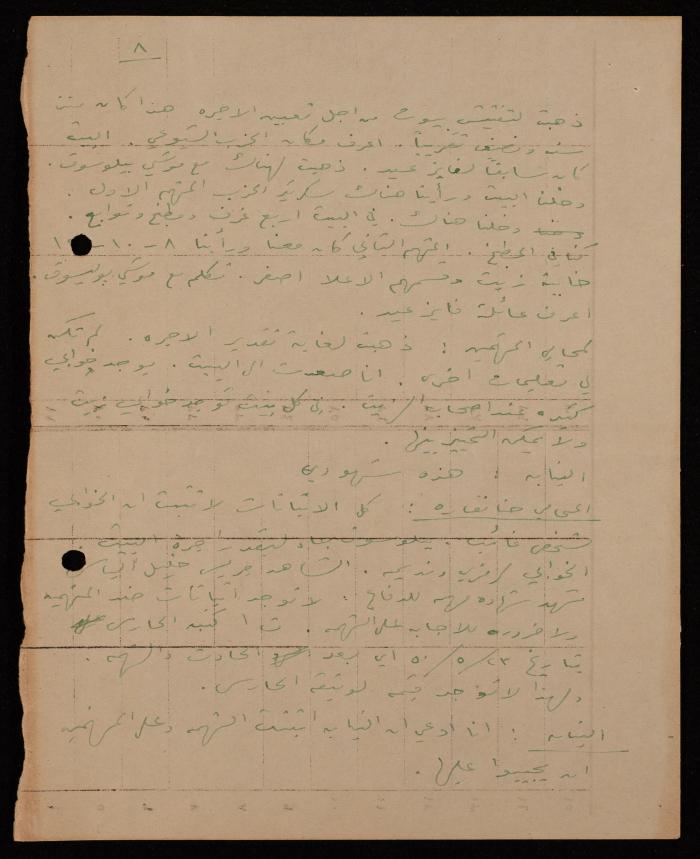 ٨
ذهبت لتفتيش بيوت من اجل تعيين الاجره هذا كان منذ
سنه ونصف تقريباً. اعرف مكان الحزب الشيوعي. البيت
كان سابقاً لفايز عيد. ذهبت لهناك مع موسى بيلوسوف.
دخلنا البيت ورأينا هناك سكرتير الحزب المتهم الاول.
دخلنا هناك. في البيت اربع غرف ومطبخ وتوابع.
كنا في المطبخ. المتهم الثاني كان معنا ورأينا ٨ - ١٠ - ١٢
خابية زيت وقسمهم الاعلا اصفر. تكلم مع موسى بيلوسوف.
اعرف عائلة فايز عيد.
لمحامي المتهمين : ذهبت لغاية تقدير الاجره. لم تكن
لي تعليمات اخرى. انا صعدت الى البيت. يوجد خوابي
كثيره عند اصحاب الزيت. في كل بيت توجد خوابي زيت
ولا يمكن التمييز بينها.
النيابه : هذه شهودي
المحامي حنا نقاره : كل الاثباتات لا تثبت ان الخوابي
لشخص غائب. بيلوسوف جاء لتقدير اجرة البيت.
الخوابي لرمزي ونديمه. الشاهد جريس خليل الياس
شهد شهاده مهمه للدفاع. لا توجد اثباتات ضد المتهمين
ولا ضروره للاجابه على التهمه. ت ١ كتبه الحارس
بتاريخ ٢٣/٥/٥٠ اي بعد الحادث والتهمه.
ولهذا لا توجد قيمه لوثيقة الحارس.
النيابه : انا ادعي ان النيابه اثبتت التهمه وعلى المتهمين
ان يجيبوا عليها.